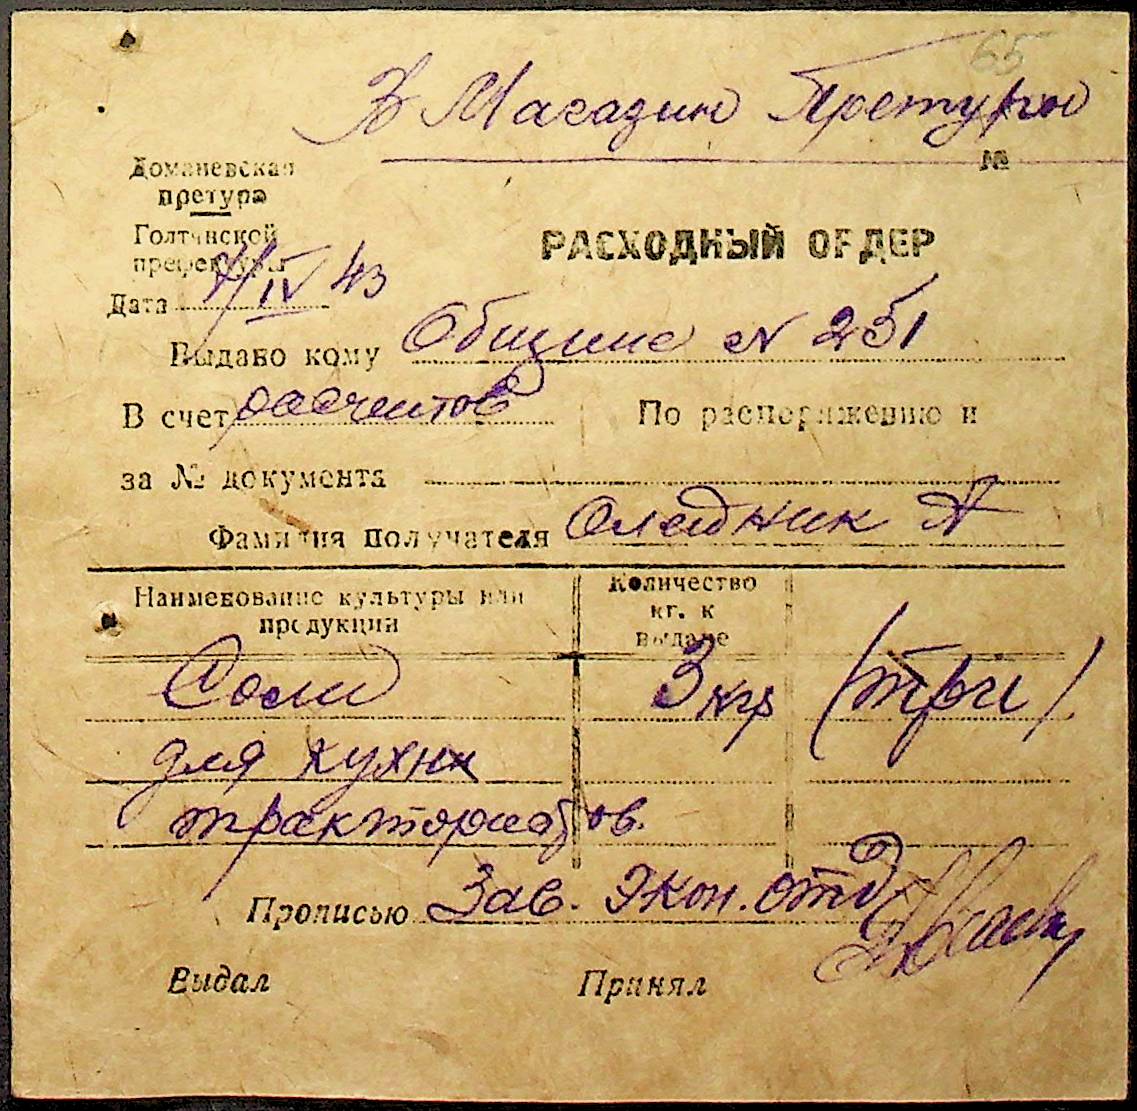 65
В Магазин Претуры
№
Доманевская
претура
Голтянской
префектуры
РАСХОДНЫЙ ОРДЕР
Дата 7/IV 43
Выдано кому Общине N 251
В счет расчетов По распоряжению и
за № документа
Фамилия получателя Олейник А
Наименование культуры или
продукции
Количество
кг. к
выдаче
Соли 3 кгр (три)
для кухни
трактористов.
Прописью Зав. Экон. отд
Выдал Принял